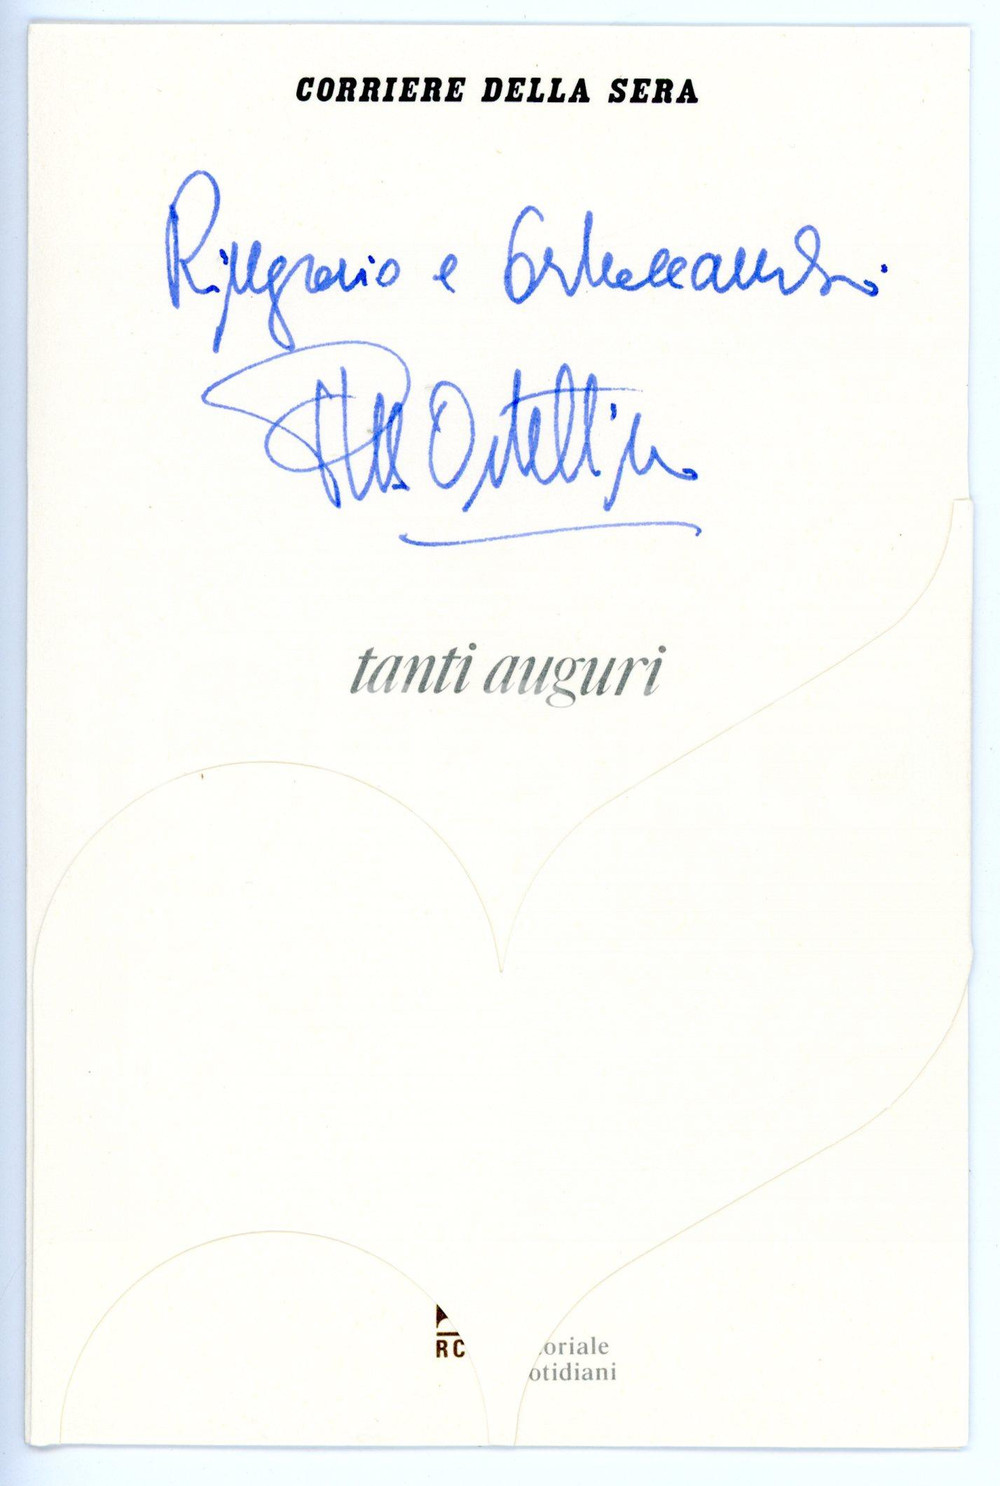 CORRIERE DELLA SERA
Ringrazio e contraccambio
Piero Ostellino
tanti auguri
RC oriale
otidiani